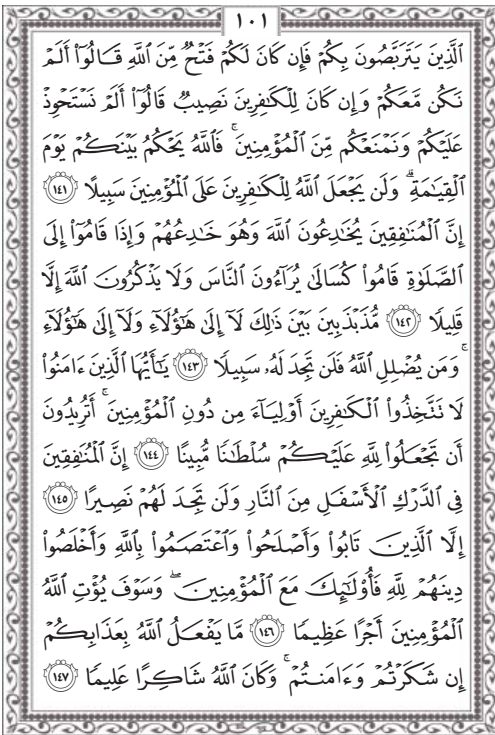 ١٠١
ٱلَّذِينَ يَتَرَبَّصُونَ بِكُمْ فَإِن كَانَ لَكُمْ فَتْحٌ مِّنَ ٱللَّهِ قَالُوٓا۟ أَلَمْ
نَكُن مَّعَكُمْ وَإِن كَانَ لِلْكَٰفِرِينَ نَصِيبٌ قَالُوٓا۟ أَلَمْ نَسْتَحْوِذْ
عَلَيْكُمْ وَنَمْنَعْكُم مِّنَ ٱلْمُؤْمِنِينَ ۚ فَٱللَّهُ يَحْكُمُ بَيْنَكُمْ يَوْمَ
ٱلْقِيَٰمَةِ ۗ وَلَن يَجْعَلَ ٱللَّهُ لِلْكَٰفِرِينَ عَلَى ٱلْمُؤْمِنِينَ سَبِيلًا ١٤١
إِنَّ ٱلْمُنَٰفِقِينَ يُخَٰدِعُونَ ٱللَّهَ وَهُوَ خَٰدِعُهُمْ وَإِذَا قَامُوٓا۟ إِلَى
ٱلصَّلَوٰةِ قَامُوا۟ كُسَالَىٰ يُرَآءُونَ ٱلنَّاسَ وَلَا يَذْكُرُونَ ٱللَّهَ إِلَّا
قَلِيلًا ١٤٢ مُّذَبْذَبِينَ بَيْنَ ذَٰلِكَ لَآ إِلَىٰ هَٰٓؤُلَآءِ وَلَآ إِلَىٰ هَٰٓؤُلَآءِ
ۚ وَمَن يُضْلِلِ ٱللَّهُ فَلَن تَجِدَ لَهُۥ سَبِيلًا ١٤٣ يَٰٓأَيُّهَا ٱلَّذِينَ ءَامَنُوا۟
لَا تَتَّخِذُوا۟ ٱلْكَٰفِرِينَ أَوْلِيَآءَ مِن دُونِ ٱلْمُؤْمِنِينَ ۚ أَتُرِيدُونَ
أَن تَجْعَلُوا۟ لِلَّهِ عَلَيْكُمْ سُلْطَٰنًا مُّبِينًا ١٤٤ إِنَّ ٱلْمُنَٰفِقِينَ
فِى ٱلدَّرْكِ ٱلْأَسْفَلِ مِنَ ٱلنَّارِ وَلَن تَجِدَ لَهُمْ نَصِيرًا ١٤٥
إِلَّا ٱلَّذِينَ تَابُوا۟ وَأَصْلَحُوا۟ وَٱعْتَصَمُوا۟ بِٱللَّهِ وَأَخْلَصُوا۟
دِينَهُمْ لِلَّهِ فَأُو۟لَٰٓئِكَ مَعَ ٱلْمُؤْمِنِينَ ۖ وَسَوْفَ يُؤْتِ ٱللَّهُ
ٱلْمُؤْمِنِينَ أَجْرًا عَظِيمًا ١٤٦ مَّا يَفْعَلُ ٱللَّهُ بِعَذَابِكُمْ
إِن شَكَرْتُمْ وَءَامَنتُمْ ۚ وَكَانَ ٱللَّهُ شَاكِرًا عَلِيمًا ١٤٧